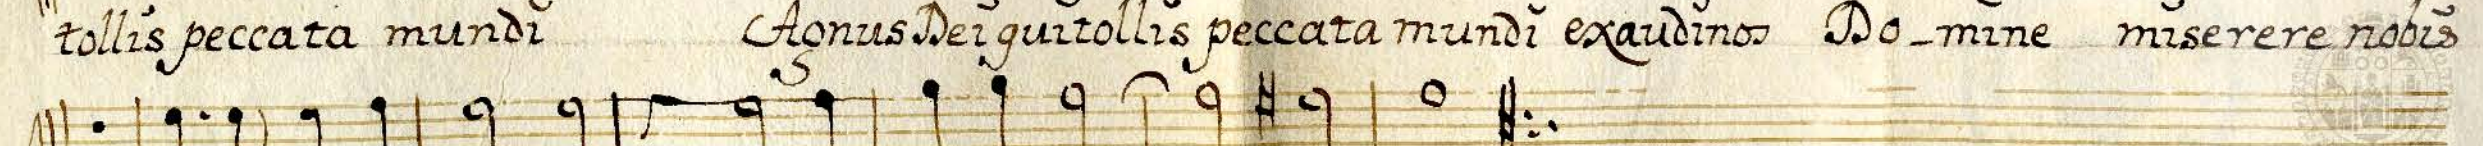 tollis peccata mundi Agnus Dei qui tollis peccata mundi exaudi nos Do-mine miserere nobis